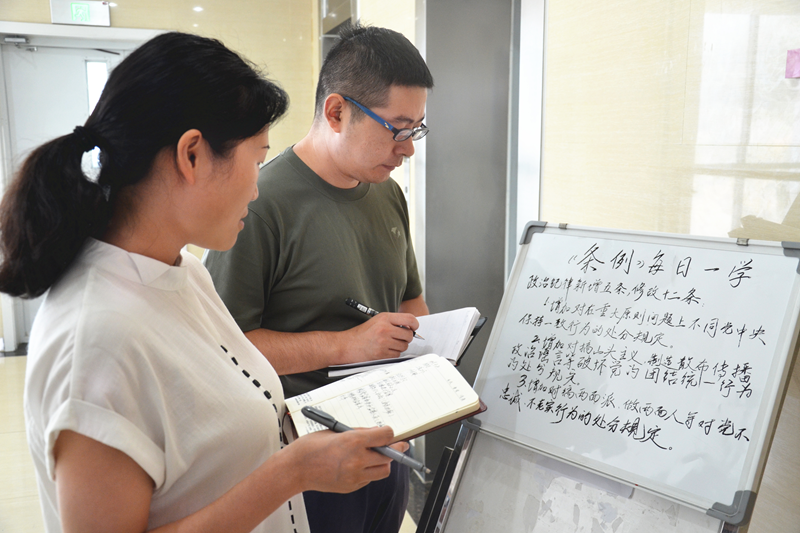 《条例》每日一学
政治纪律新增五条,修改十二条.
1.增加对在重大原则问题上不同党中央
保持一致行为的处分规定。
2.增加对搞山头主义、制造散布传播
政治谣言等破坏党的团结统一行为
的处分规定。
3.增加对搞两面派、做两面人等对党不
忠诚不老实行为的处分规定。